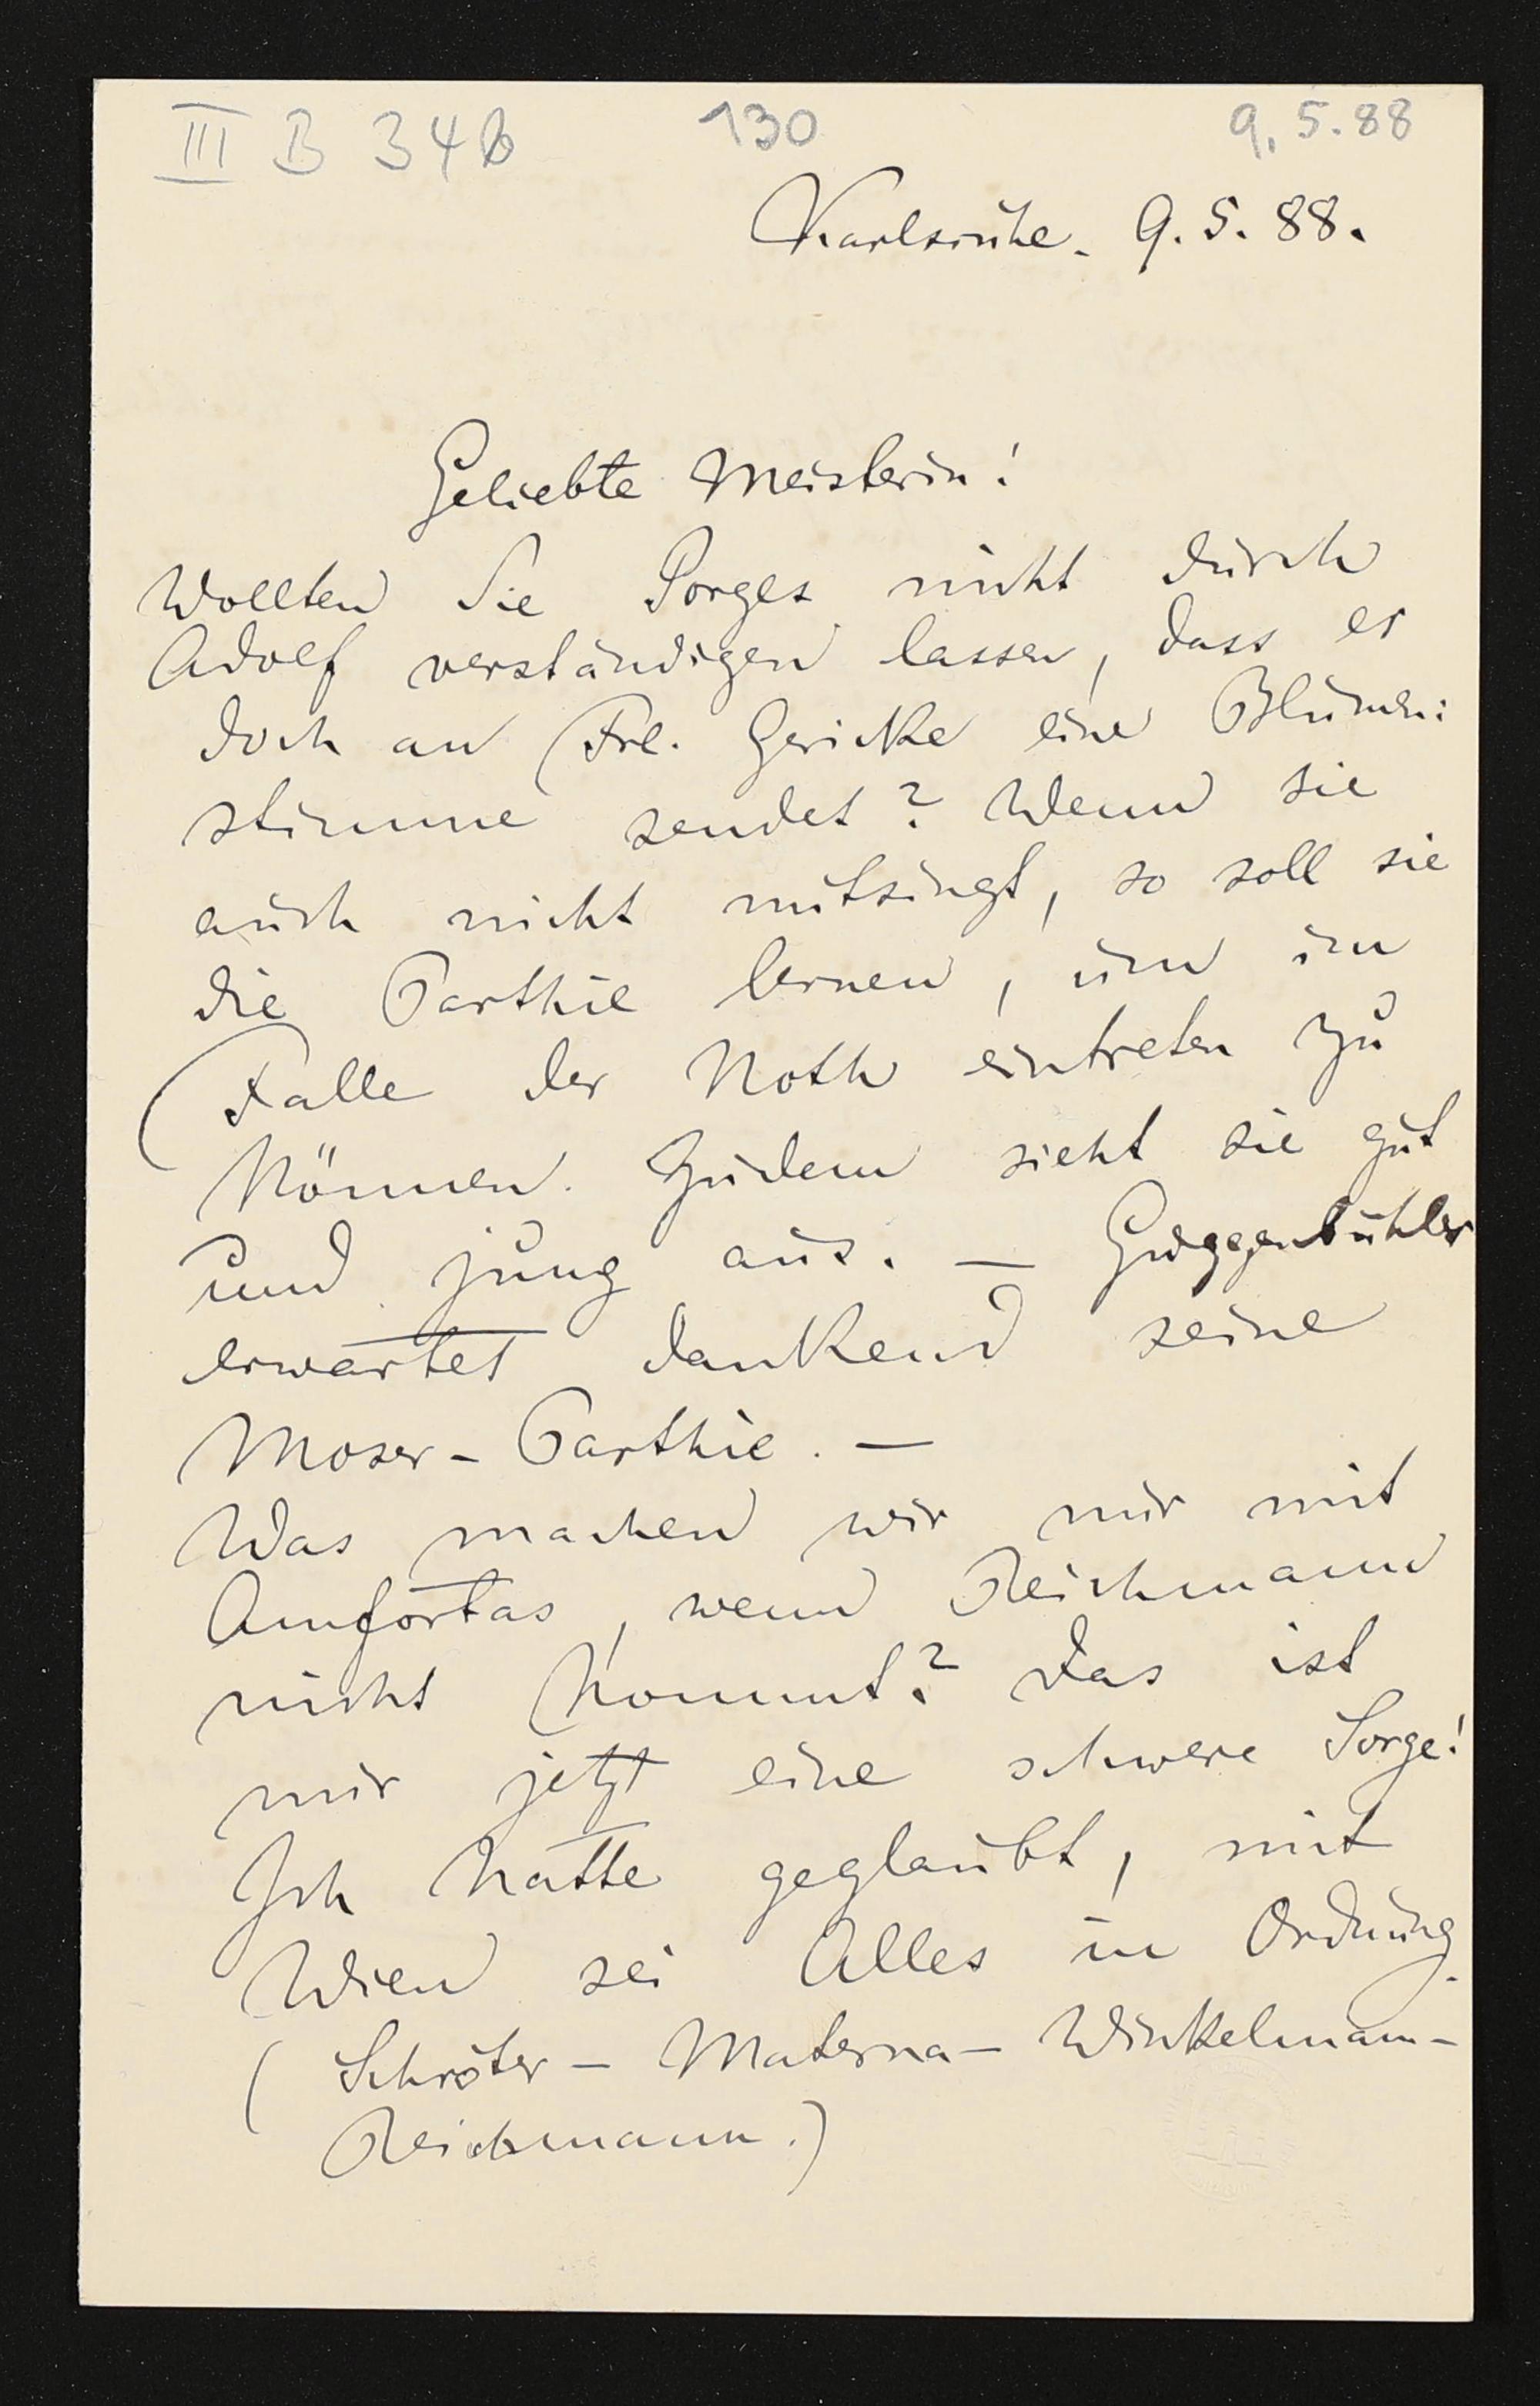 III B 34b 130 9.5.88
Karlsruhe. 9.5.88.
Geliebte Meisterin!
Wollten Sie Porges nicht durch
Adolf verständigen lassen, dass er
doch an Frl. Gericke eine Blumen:
stimme sendet? Wenn sie
auch nicht mitsingt, so soll sie
die Parthie lernen, um im
Falle der Noth eintreten zu
können. Zudem sieht sie gut
und jung aus. — Guggenbühler
erwartet dankend seine
Moser-Parthie. —
Was machen wir mir mit
Amfortas, wenn Reichmann
nicht kommt? Das ist
mir jetzt eine schwere Sorge!
Ich hatte geglaubt, mit
Wien sei Alles in Ordnung.
(Schröter – Materna – Winkelmann –
Reichmann.)